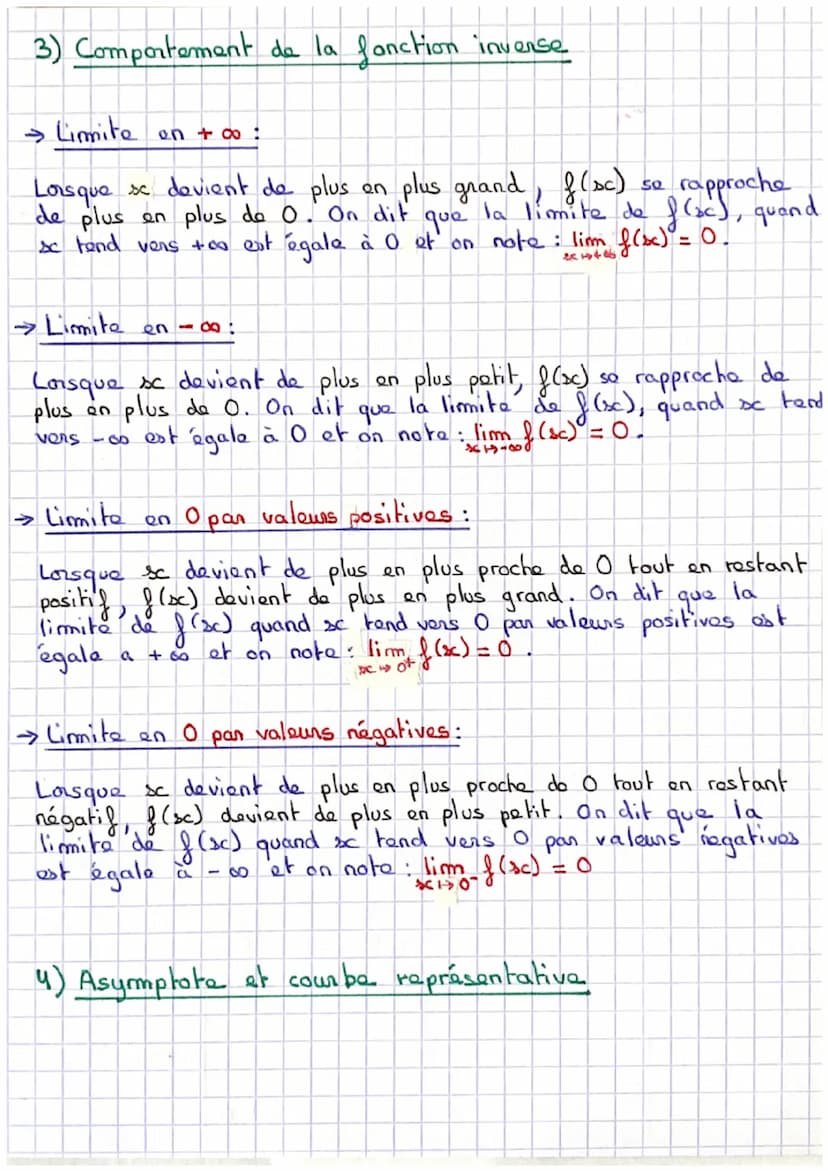 3) Comportement de la fonction inverse
→ Limite en +∞ :
Lorsque x devient de plus en plus grand, f(x) se rapproche
de plus en plus de 0. On dit que la limite de f(x), quand
x tend vers +∞ est égale à 0 et on note : lim f(x) = 0.
x↦+∞
→ Limite en -∞ :
Lorsque x devient de plus en plus petit, f(x) se rapproche de
plus en plus de 0. On dit que la limite de f(x), quand x tend
vers -∞ est égale à 0 et on note : lim f(x) = 0.
x↦-∞
→ Limite en 0 par valeurs positives :
Lorsque x devient de plus en plus proche de 0 tout en restant
positif, f(x) devient de plus en plus grand. On dit que la
limite de f(x) quand x tend vers 0 par valeurs positives est
égale a +∞ et on note : lim f(x) = 0.
x↦0⁺
→ Limite en 0 par valeurs négatives :
Lorsque x devient de plus en plus proche de 0 tout en restant
négatif, f(x) devient de plus en plus petit. On dit que la
limite de f(x) quand x tend vers 0 par valeurs négatives
est égale à -∞ et on note : lim f(x) = 0
x↦0⁻
4) Asymptote et courbe représentative